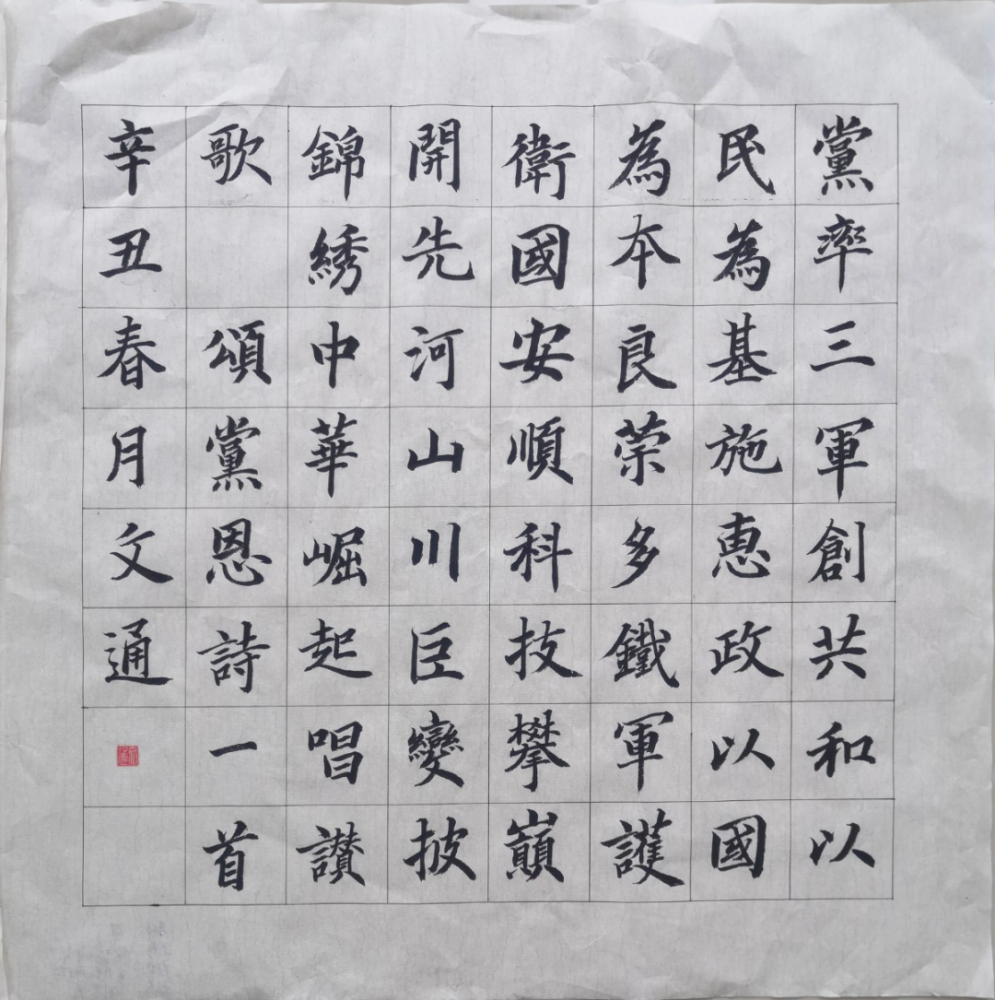 黨率三軍創共和以
民為基施惠政以國
為本良荣多鐵軍護
衛國安順科技攀巔
開先河山川巨變披
錦綉中華崛起唱讃
歌 頌黨恩詩一首
辛丑春月文通